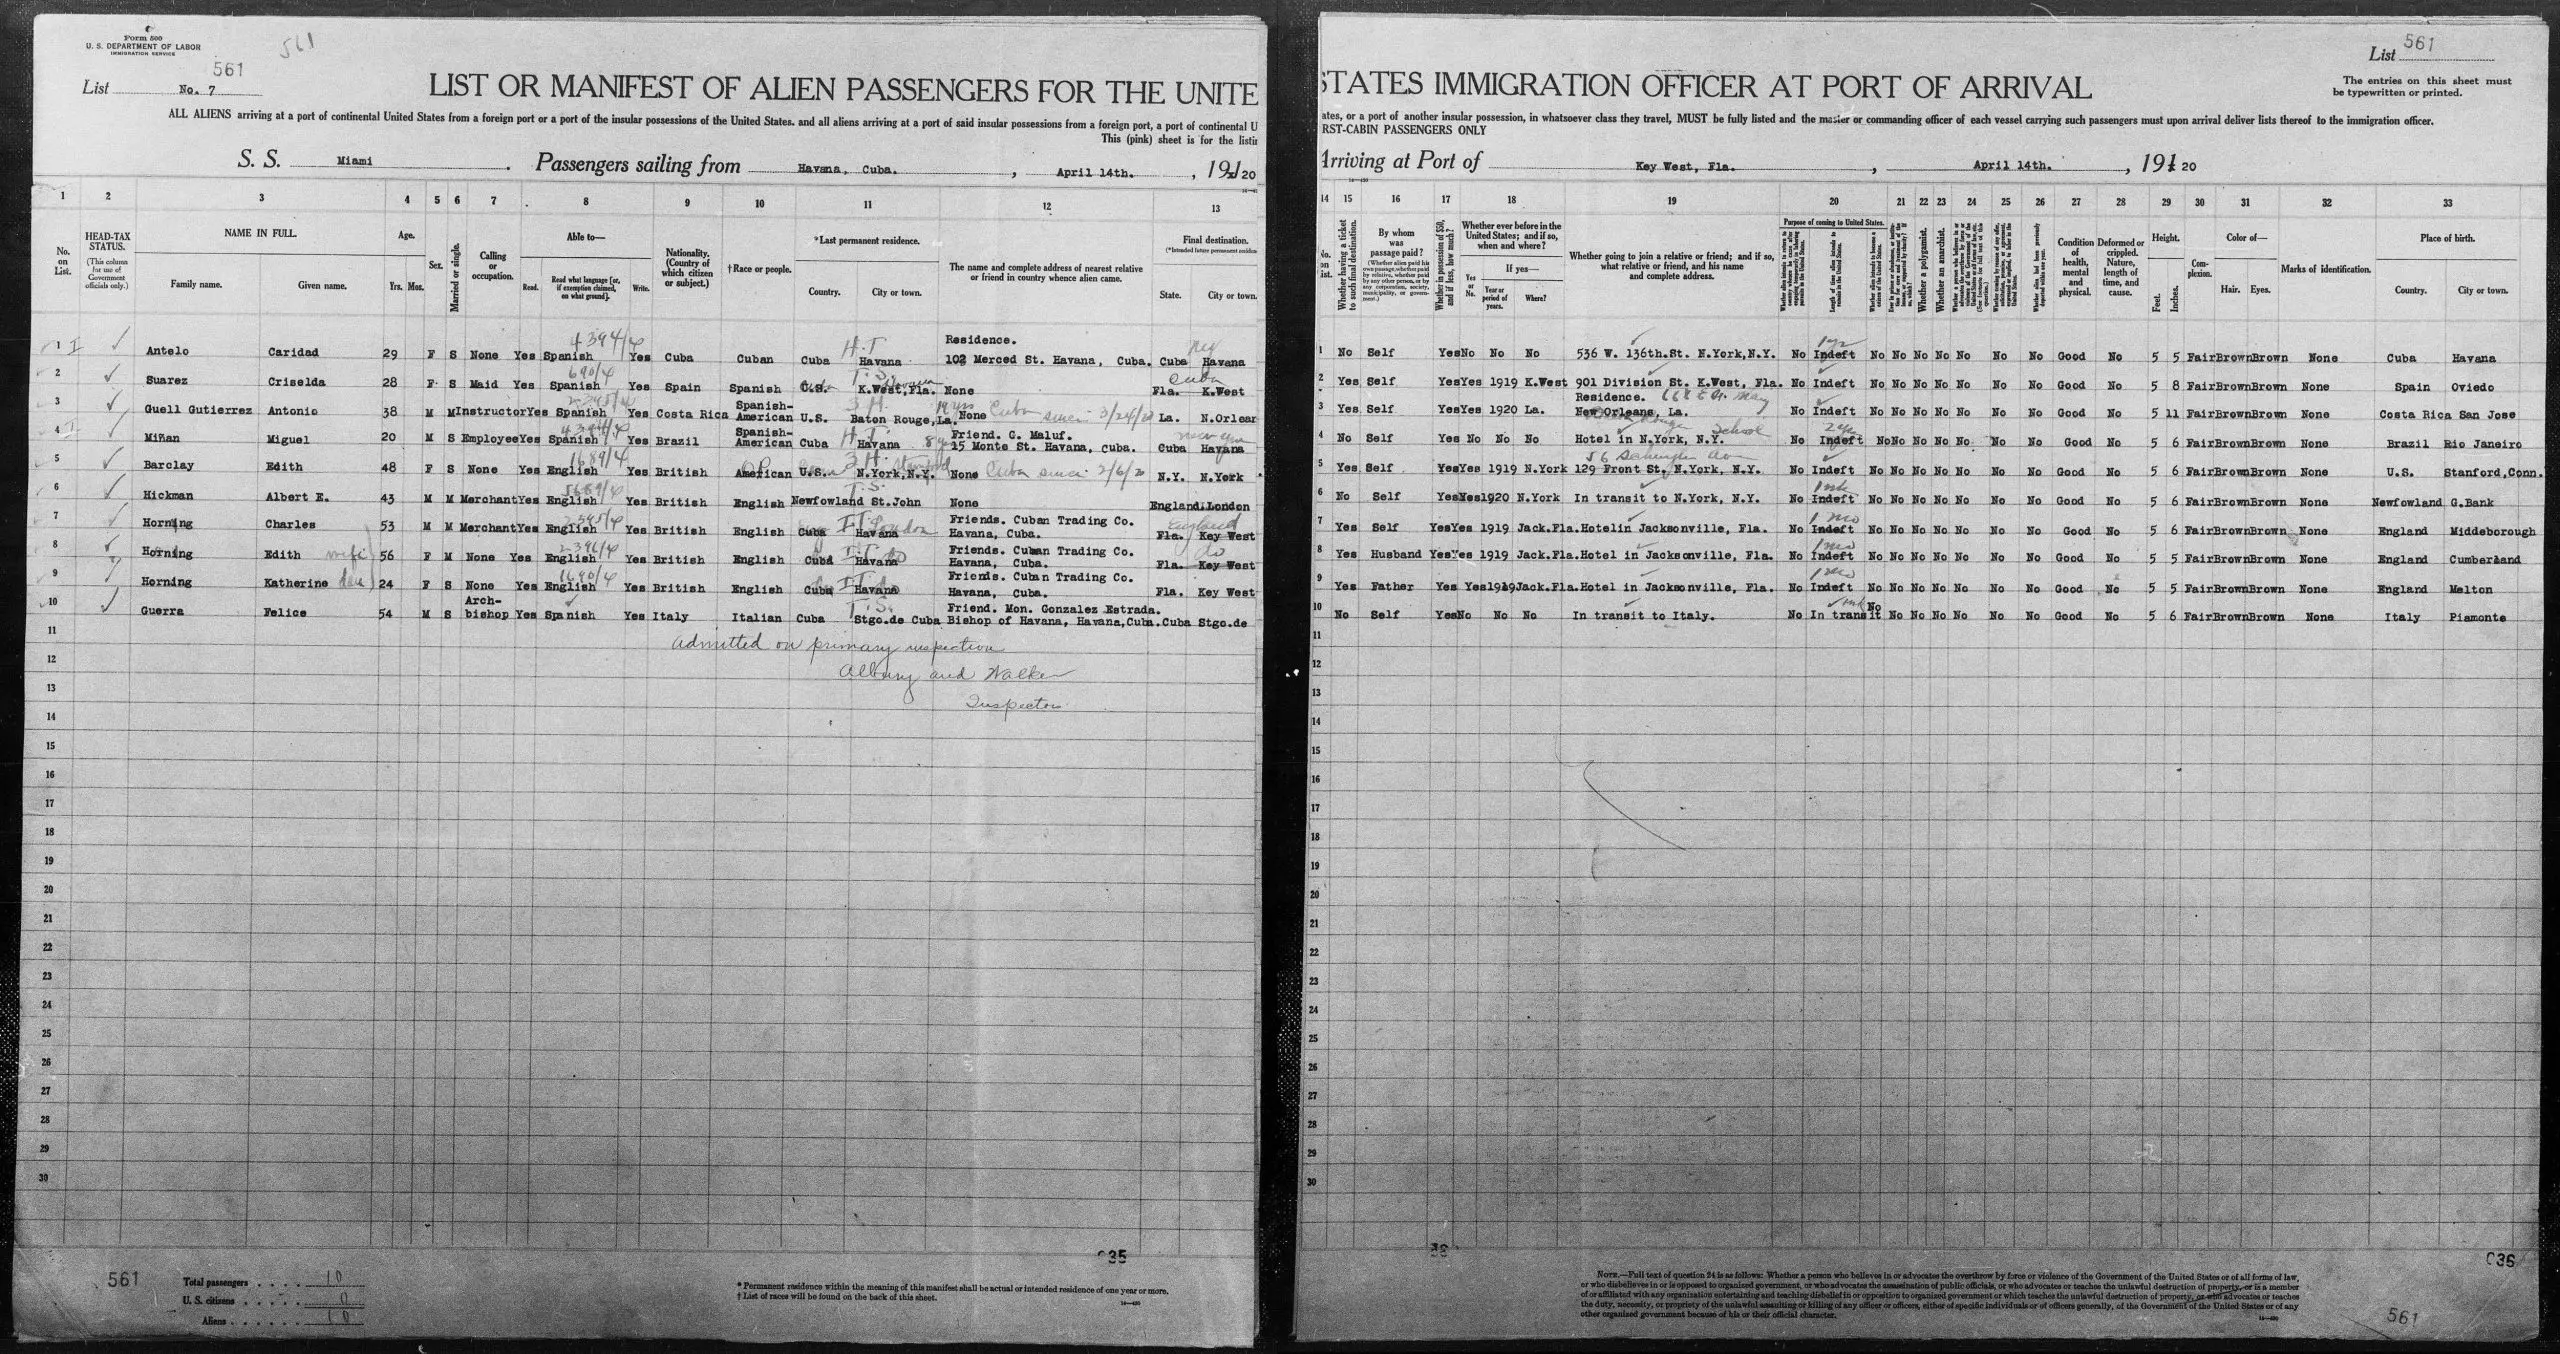 Form 500
U. S. DEPARTMENT OF LABOR
IMMIGRATION SERVICE
561
561
List No. 7
LIST OR MANIFEST OF ALIEN PASSENGERS FOR THE UNITE
ALL ALIENS arriving at a port of continental United States from a foreign port or a port of the insular possessions of the United States. and all aliens arriving at a port of said insular possessions from a foreign port, a port of continental U
This (pink) sheet is for the listin
S. S. Miami. Passengers sailing from Havana, Cuba., April 14th., 191 20
1 2 3 4 5 6 7 8 9 10 11 12 13
No. on List.
HEAD-TAX STATUS.
(This column for use of Government officials only.)
NAME IN FULL.
Family name. Given name.
Age.
Yrs. Mos.
Sex.
Married or single.
Calling or occupation.
Able to—
Read. Read what language [or, if exemption claimed, on what ground]. Write.
Nationality. (Country of which citizen or subject.)
†Race or people.
*Last permanent residence.
Country. City or town.
The name and complete address of nearest relative or friend in country whence alien came.
Final destination.
(*Intended future permanent residen
State. City or town.
Residence.
1 Antelo Caridad 29 F S None Yes Spanish Yes Cuba Cuban Cuba Havana 102 Merced St. Havana, Cuba. Cuba Havana
2 Suarez Criselda 28 F S Maid Yes Spanish Yes Spain Spanish U.S. K.West,Fla. None Fla. K.West
3 Guell Gutierrez Antonio 38 M M Instructor Yes Spanish Yes Costa Rica Spanish-American U.S. Baton Rouge,La. None Cuba since 3/24/20 La. N.Orlean
4 Miñan Miguel 20 M S Employee Yes Spanish Yes Brazil Spanish-American Cuba Havana Friend. G. Maluf. 15 Monte St. Havana, Cuba. Cuba Havana
5 Barclay Edith 48 F S None Yes English Yes British American U.S. N.York,N.Y. None Cuba since 2/6/20 N.Y. N.York
6 Hickman Albert E. 43 M M Merchant Yes English Yes British English Newfowland St.John None England.London
7 Horning Charles 53 M M Merchant Yes English Yes British English Havana Friends. Cuban Trading Co. Havana, Cuba. Fla. Key West
8 Horning Edith wife 56 F M None Yes English Yes British English Cuba Havana Friends. Cuban Trading Co. Havana, Cuba. Fla. Key West
9 Horning Katherine 24 F S None Yes English Yes British English Cuba Havana Friends. Cuban Trading Co. Havana, Cuba. Fla. Key West
10 Guerra Felice 54 M S Arch-bishop Yes Spanish Yes Italy Italian Cuba Stgo.de Cuba Friend. Mon. Gonzalez Estrada. Bishop of Havana, Havana,Cuba. Cuba Stgo.de
Admitted on primary inspection
Albury and Walker
Inspectors
11
12
13
14
15
16
17
18
19
20
21
22
23
24
25
26
27
28
29
30
035
561
Total passengers 10
U. S. citizens 0
Aliens 10
*Permanent residence within the meaning of this manifest shall be actual or intended residence of one year or more.
†List of races will be found on the back of this sheet.
List 561
STATES IMMIGRATION OFFICER AT PORT OF ARRIVAL
The entries on this sheet must be typewritten or printed.
ates, or a port of another insular possession, in whatsoever class they travel, MUST be fully listed and the master or commanding officer of each vessel carrying such passengers must upon arrival deliver lists thereof to the immigration officer.
RST-CABIN PASSENGERS ONLY
Arriving at Port of Key West, Fla., April 14th., 191 20
14 15 16 17 18 19 20 21 22 23 24 25 26 27 28 29 30 31 32 33
No. on List.
Whether having a ticket to such final destination.
By whom was passage paid?
Whether in possession of $50, and if less, how much?
Whether ever before in the United States; and if so, when and where?
Yes or No.
If yes—
Year or period of years. Where?
Whether going to join a relative or friend; and if so, what relative or friend, and his name and complete address.
Purpose of coming to United States.
Whether a polygamist.
Whether an anarchist.
Condition of health, mental and physical.
Deformed or crippled. Nature, length of time, and cause.
Height.
Feet. Inches.
Complexion.
Color of—
Hair. Eyes.
Marks of identification.
Place of birth.
Country. City or town.
1 No Self Yes No No No 536 W. 136th.St. N.York,N.Y. No Indeft No No No No No No No Good No 5 5 Fair Brown Brown None Cuba Havana
2 Yes Self Yes Yes 1919 K.West 901 Division St. K.West, Fla. No Indeft No No No No No No No Good No 5 8 Fair Brown Brown None Spain Oviedo
3 Yes Self Yes Yes 1920 La. Residence. New Orleans, La. No Indeft No No No No No No No Good No 5 11 Fair Brown Brown None Costa Rica San Jose
4 No Self Yes No No No Hotel in N.York, N.Y. No Indeft No No No No No No No Good No 5 6 Fair Brown Brown None Brazil Rio Janeiro
5 Yes Self Yes Yes 1919 N.York 129 Front St. N.York, N.Y. No Indeft No No No No No No No Good No 5 6 Fair Brown Brown None U.S. Stanford,Conn.
6 No Self Yes Yes 1920 N.York In transit to N.York, N.Y. No Indeft No No No No No No No Good No 5 6 Fair Brown Brown None Newfowland G.Bank
7 Yes Self Yes Yes 1919 Jack.Fla. Hotelin Jacksonville, Fla. No Indeft No No No No No No No Good No 5 6 Fair Brown Brown None England Middeborough
8 Yes Husband Yes Yes 1919 Jack.Fla. Hotel in Jacksonville, Fla. No Indeft No No No No No No No Good No 5 5 Fair Brown Brown None England Cumberland
9 Yes Father Yes Yes 1919 Jack.Fla. Hotel in Jacksonville, Fla. No Indeft No No No No No No No Good No 5 5 Fair Brown Brown None England Melton
10 No Self Yes No No No In transit to Italy. No In transit No No No No No No No Good No 5 6 Fair Brown Brown None Italy Piamonte
11
12
13
14
15
16
17
18
19
20
21
22
23
24
25
26
27
28
29
30
036
NOTE.—Full text of question 24 is as follows: Whether a person who believes in or advocates the overthrow by force or violence of the Government of the United States or of all forms of law,
or who disbelieves in or is opposed to organized government, or who advocates the assassination of public officials, or who advocates or teaches the unlawful destruction of property, or is a member
of or affiliated with any organization entertaining and teaching disbelief in or opposition to organized government or which teaches the unlawful destruction of property, or who advocates or teaches
the duty, necessity, or propriety of the unlawful assaulting or killing of any officer or officers, either of specific individuals or of officers generally, of the Government of the United States or of any
other organized government because of his or their official character.
561